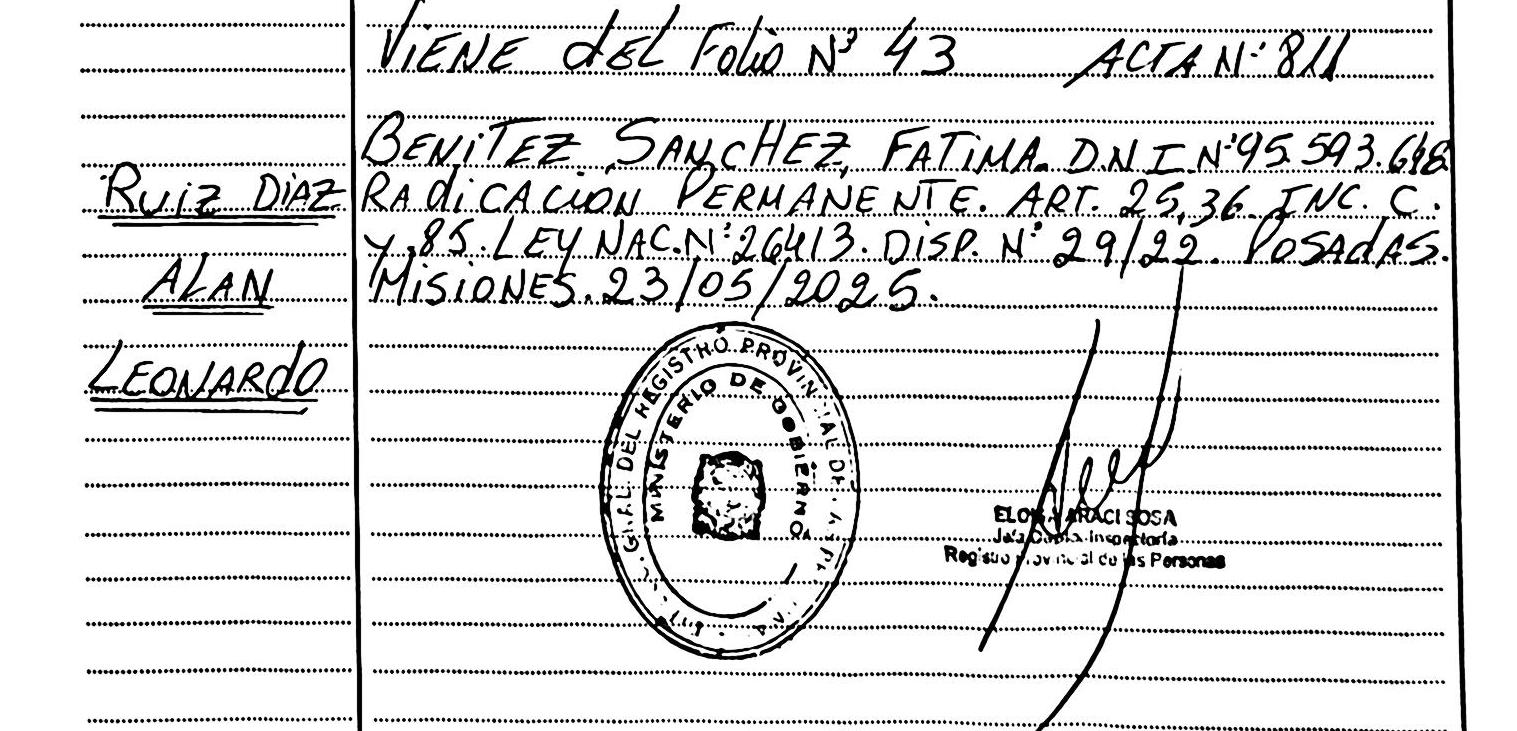 VIENE dEL Folio Nº 43 ACTA Nº 811
BENITEZ SANCHEZ, FATIMA. D.N.I. Nº 95.593.648
RADICACION PERMANENTE. ART. 25, 36. INC. C.
Y 85. LEY NAC. Nº 26413. DISP. Nº 29/22. POSADAS.
MISIONES. 23/05/2025.
RUIZ DIAZ
ALAN
LEONARDO
GRAL. DEL REGISTRO PROVINCIAL DE
MINISTERIO DE GOBIERNO
ARACI SOSA
Inspectoría
Registro Provincial de las Personas